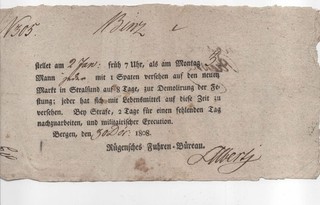 N 305.
Binz
stellet am 2 Jan: früh 7 Uhr, als am Montag 3
Mann jeder mit 1 Spaten versehen auf den neuen
Markt in Stralsund auf 8 Tage, zur Demolirung der Fe-
stung; jeder hat sich mit Lebensmittel auf diese Zeit zu
versehen. Bey Strafe, 2 Tage für einen fehlenden Tag
nachzuarbeiten, und militairischer Execution.
Bergen, den 30 Dec: 1808.
Rügensches Fuhren-Büreau.